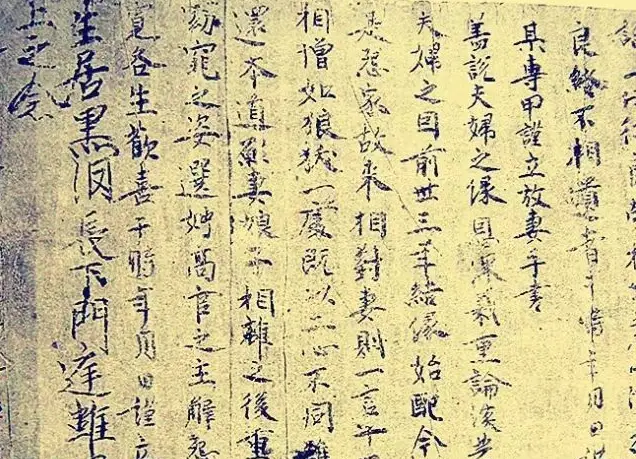 良緣不相遺書于時年月日
某專甲謹立放妻手書
蓋說夫婦之緣恩深義重論談共
夫婦之因前世三年結緣始配今
是怨家故來相對妻則一言十
相憎如狼狖一處既以二心不同難
還本道願妻娘子相離之後重
窕之姿選娉高官之主解怨
各生歡喜于時年月日謹立
生居黑淚長下門庭難
上之念